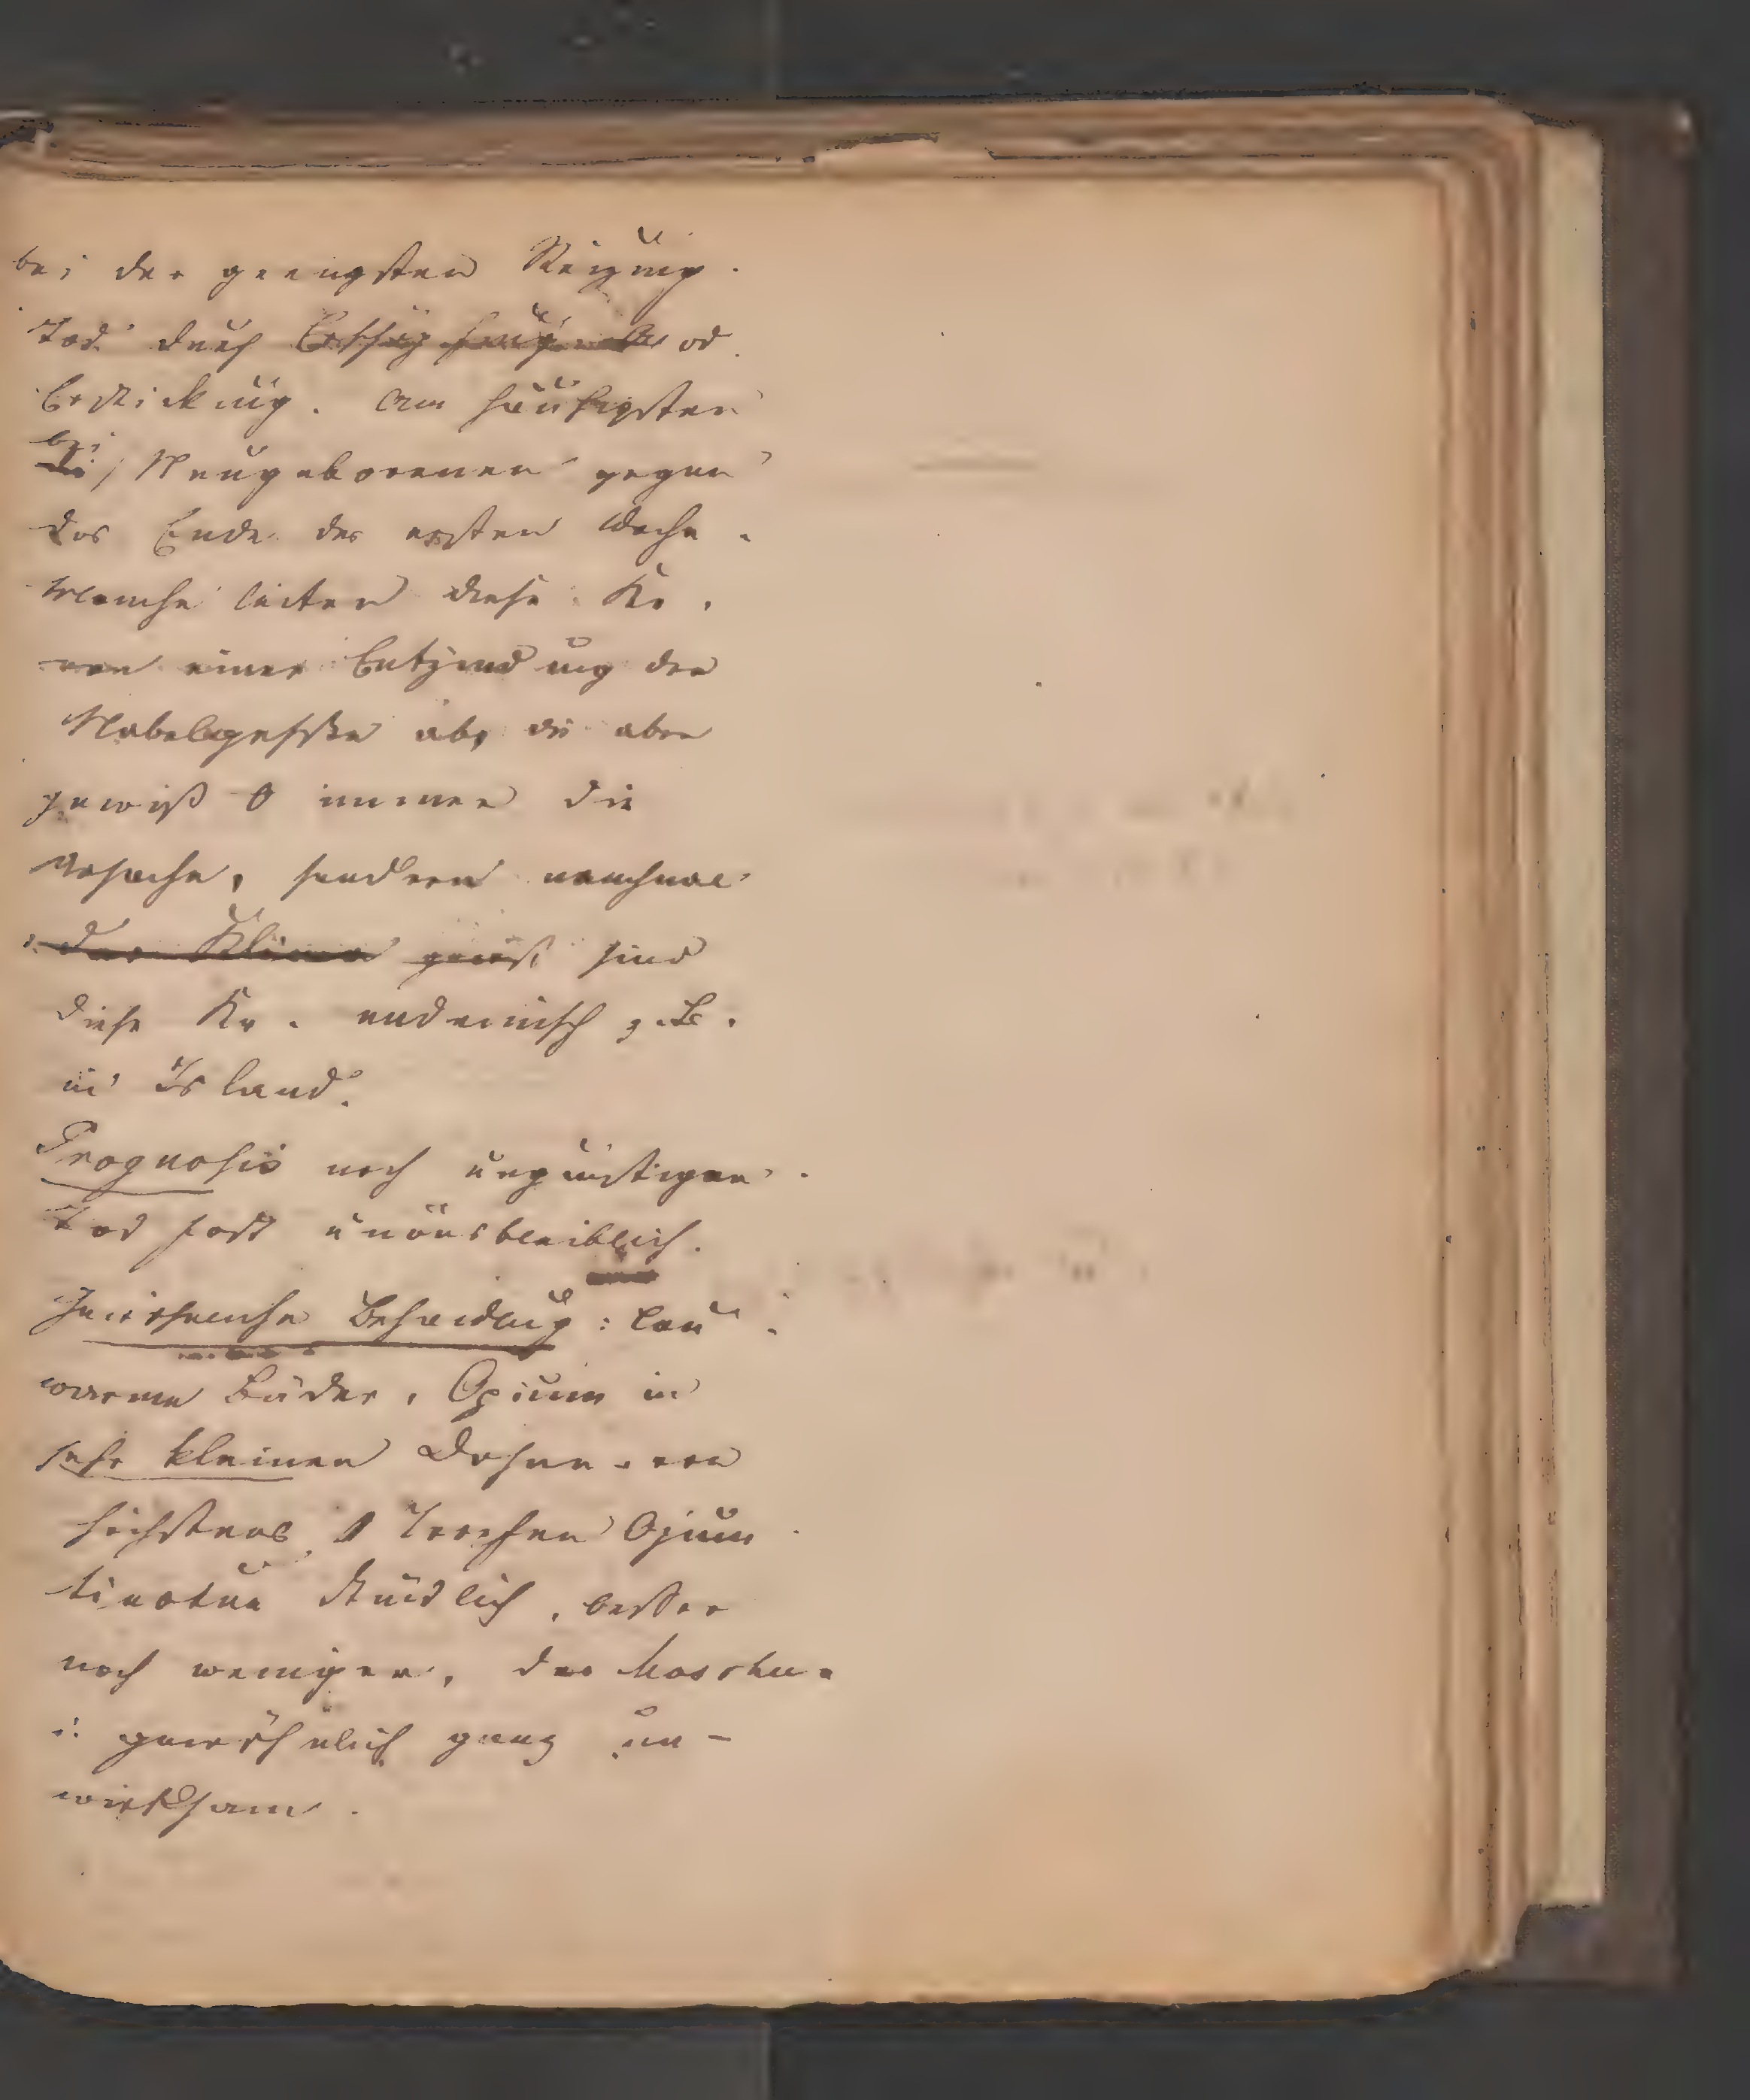 bei der geringsten Reizung.
Tod durch Erschöpfung od.
Erstickung. Am häufigsten
bei Neugeborenen gegen
das Ende der ersten Woche.
Manche leiten diese Kr.
von einer Entzündung der
Nabelgefäße ab, die aber
gewiß 0 immer die
Ursache, sondern manchmal
das Klima sind
diese Kr. endemisch z.B.
in Island.
Prognosis noch ungünstiger.
Tod fast unausbleiblich.
Behandlung: lau
warme Bäder, Opium in
sehr kleinen Dosen von
höchstens 1 Tropfen Opium
tinctur stündlich, besser
noch weniger, der Moschus
i: gewöhnlich ganz un-
wirksam.